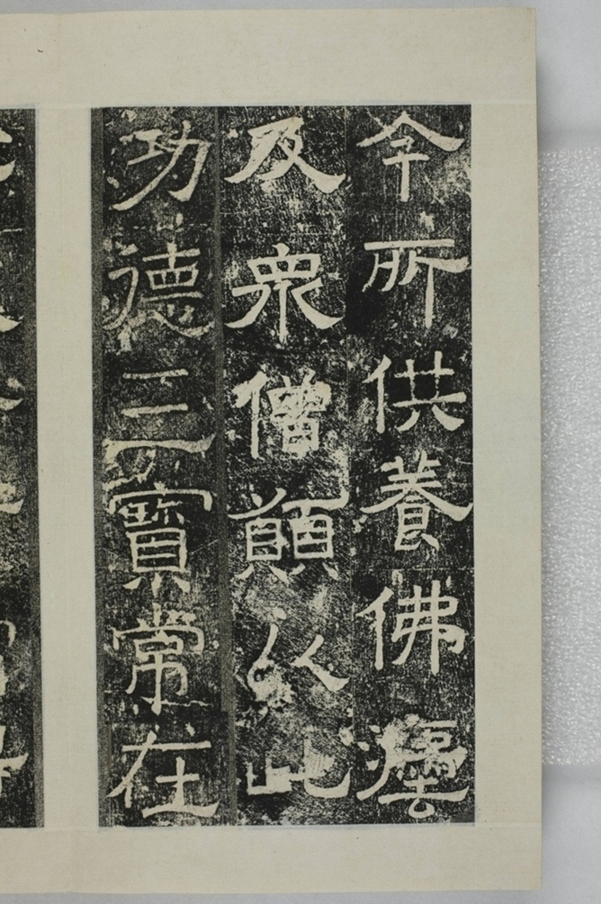 今所供養佛灋
及衆僧願以此
功德三寶常在